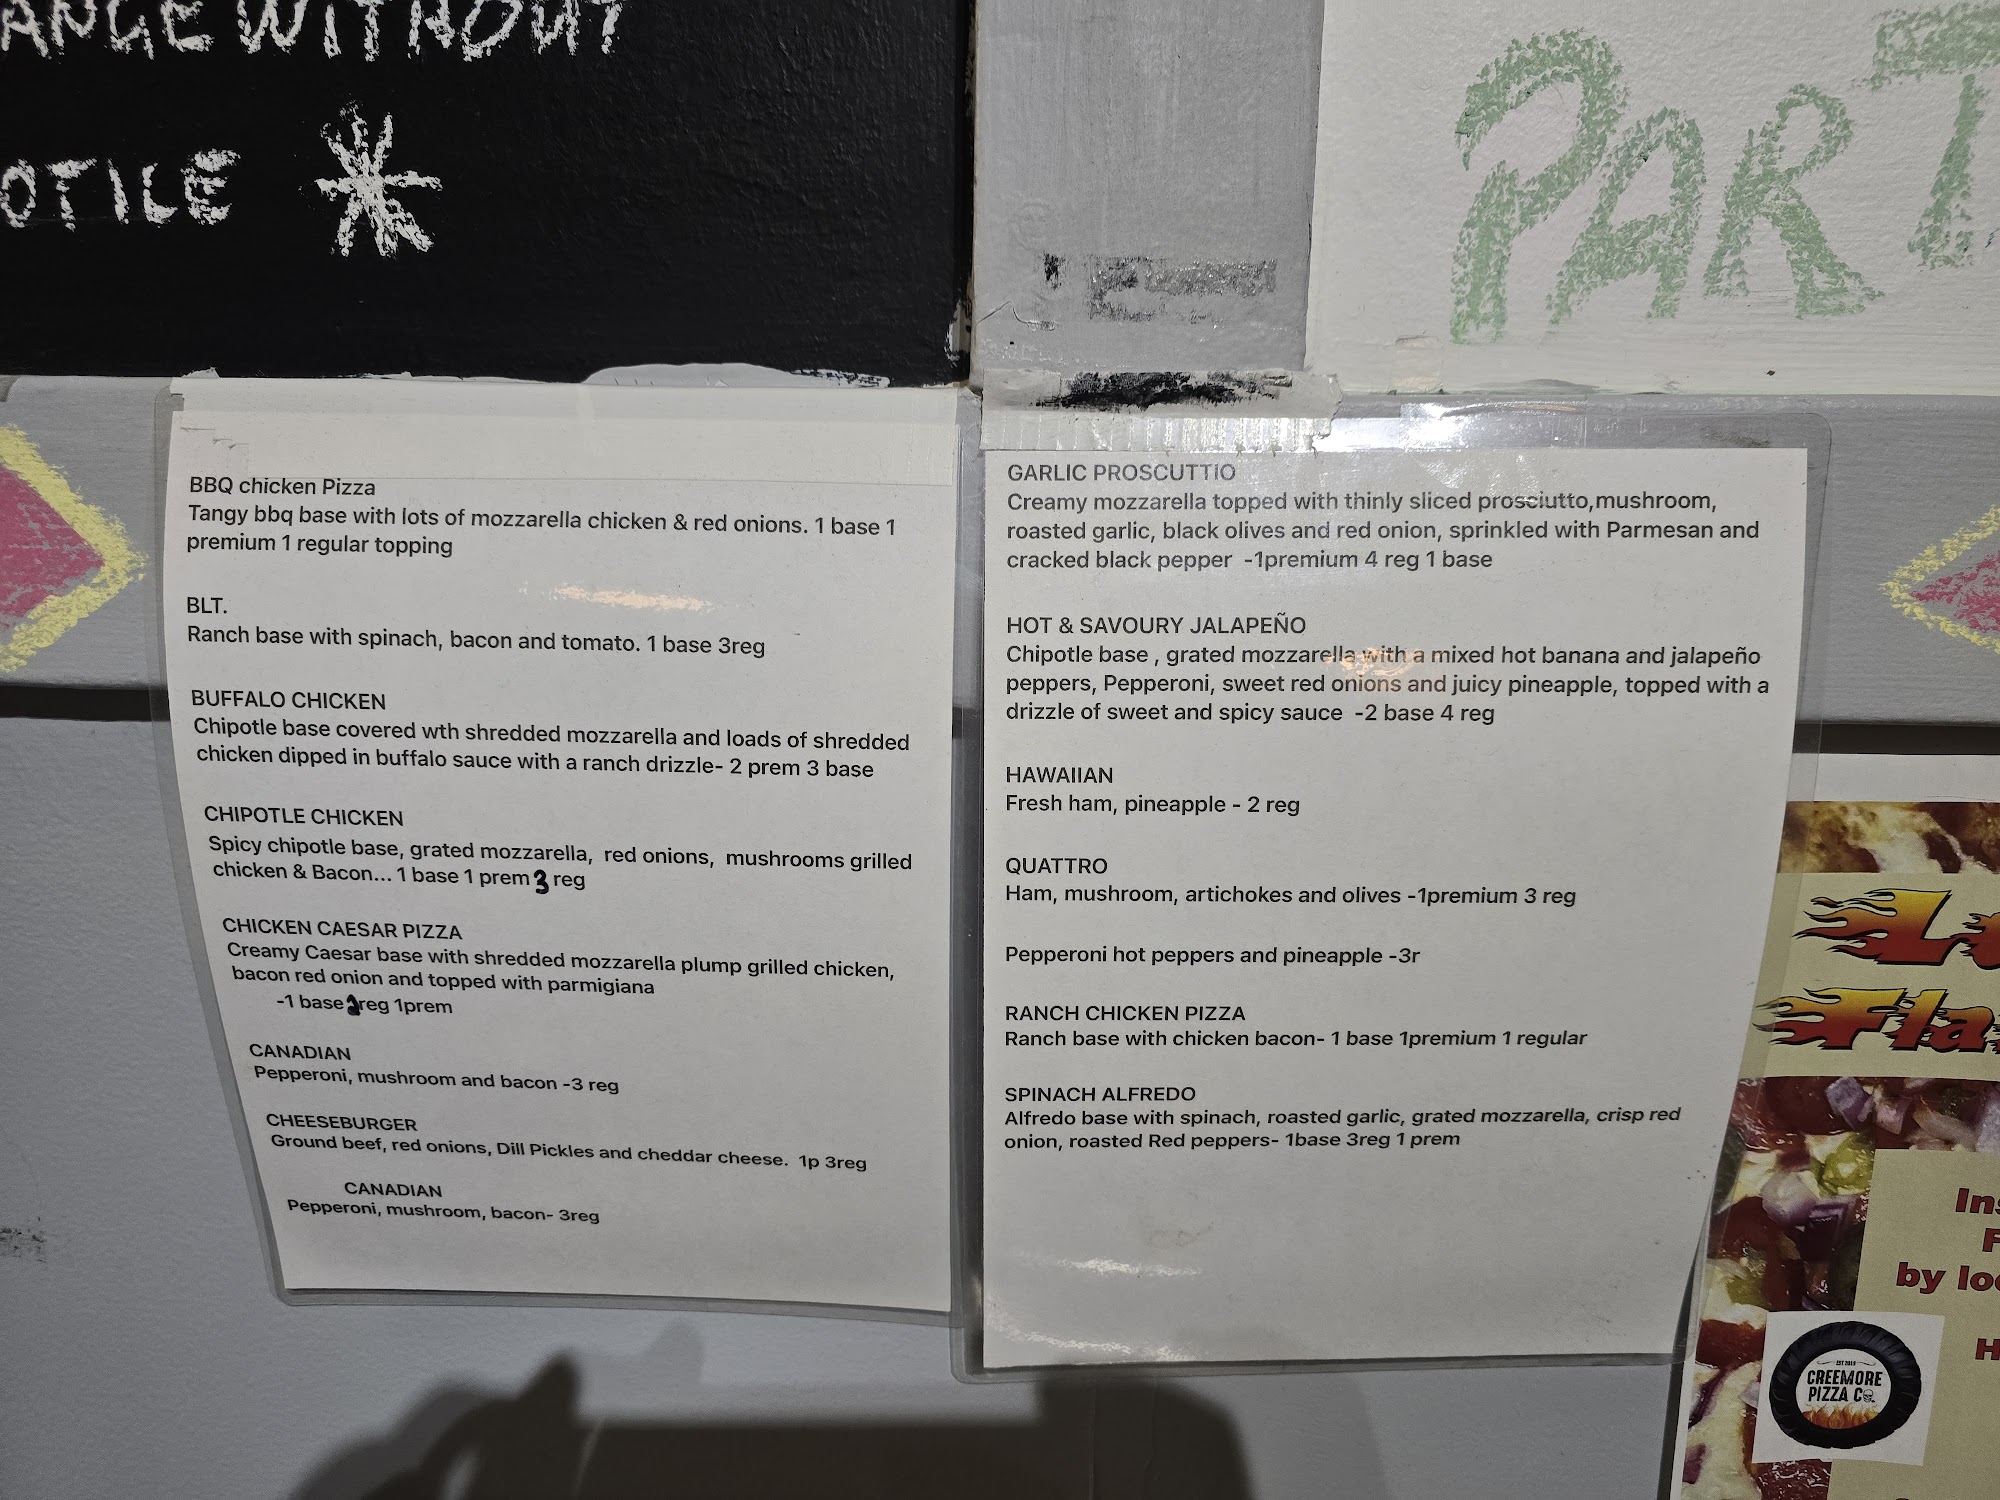 ANGE WITHOUT
OTICE *
PART
BBQ chicken Pizza
Tangy bbq base with lots of mozzarella chicken & red onions. 1 base 1
premium 1 regular topping
BLT.
Ranch base with spinach, bacon and tomato. 1 base 3reg
BUFFALO CHICKEN
Chipotle base covered wth shredded mozzarella and loads of shredded
chicken dipped in buffalo sauce with a ranch drizzle- 2 prem 3 base
CHIPOTLE CHICKEN
Spicy chipotle base, grated mozzarella, red onions, mushrooms grilled
chicken & Bacon... 1 base 1 prem 3 reg
CHICKEN CAESAR PIZZA
Creamy Caesar base with shredded mozzarella plump grilled chicken,
bacon red onion and topped with parmigiana
-1 base 2reg 1prem
CANADIAN
Pepperoni, mushroom and bacon -3 reg
CHEESEBURGER
Ground beef, red onions, Dill Pickles and cheddar cheese. 1p 3reg
CANADIAN
Pepperoni, mushroom, bacon- 3reg
GARLIC PROSCUTTIO
Creamy mozzarella topped with thinly sliced prosciutto,mushroom,
roasted garlic, black olives and red onion, sprinkled with Parmesan and
cracked black pepper -1premium 4 reg 1 base
HOT & SAVOURY JALAPEÑO
Chipotle base , grated mozzarella with a mixed hot banana and jalapeño
peppers, Pepperoni, sweet red onions and juicy pineapple, topped with a
drizzle of sweet and spicy sauce -2 base 4 reg
HAWAIIAN
Fresh ham, pineapple - 2 reg
QUATTRO
Ham, mushroom, artichokes and olives -1premium 3 reg
Pepperoni hot peppers and pineapple -3r
RANCH CHICKEN PIZZA
Ranch base with chicken bacon- 1 base 1premium 1 regular
SPINACH ALFREDO
Alfredo base with spinach, roasted garlic, grated mozzarella, crisp red
onion, roasted Red peppers- 1base 3reg 1 prem
Fla
Ins
F
by loc
H
EST 2019
CREEMORE
PIZZA CO.